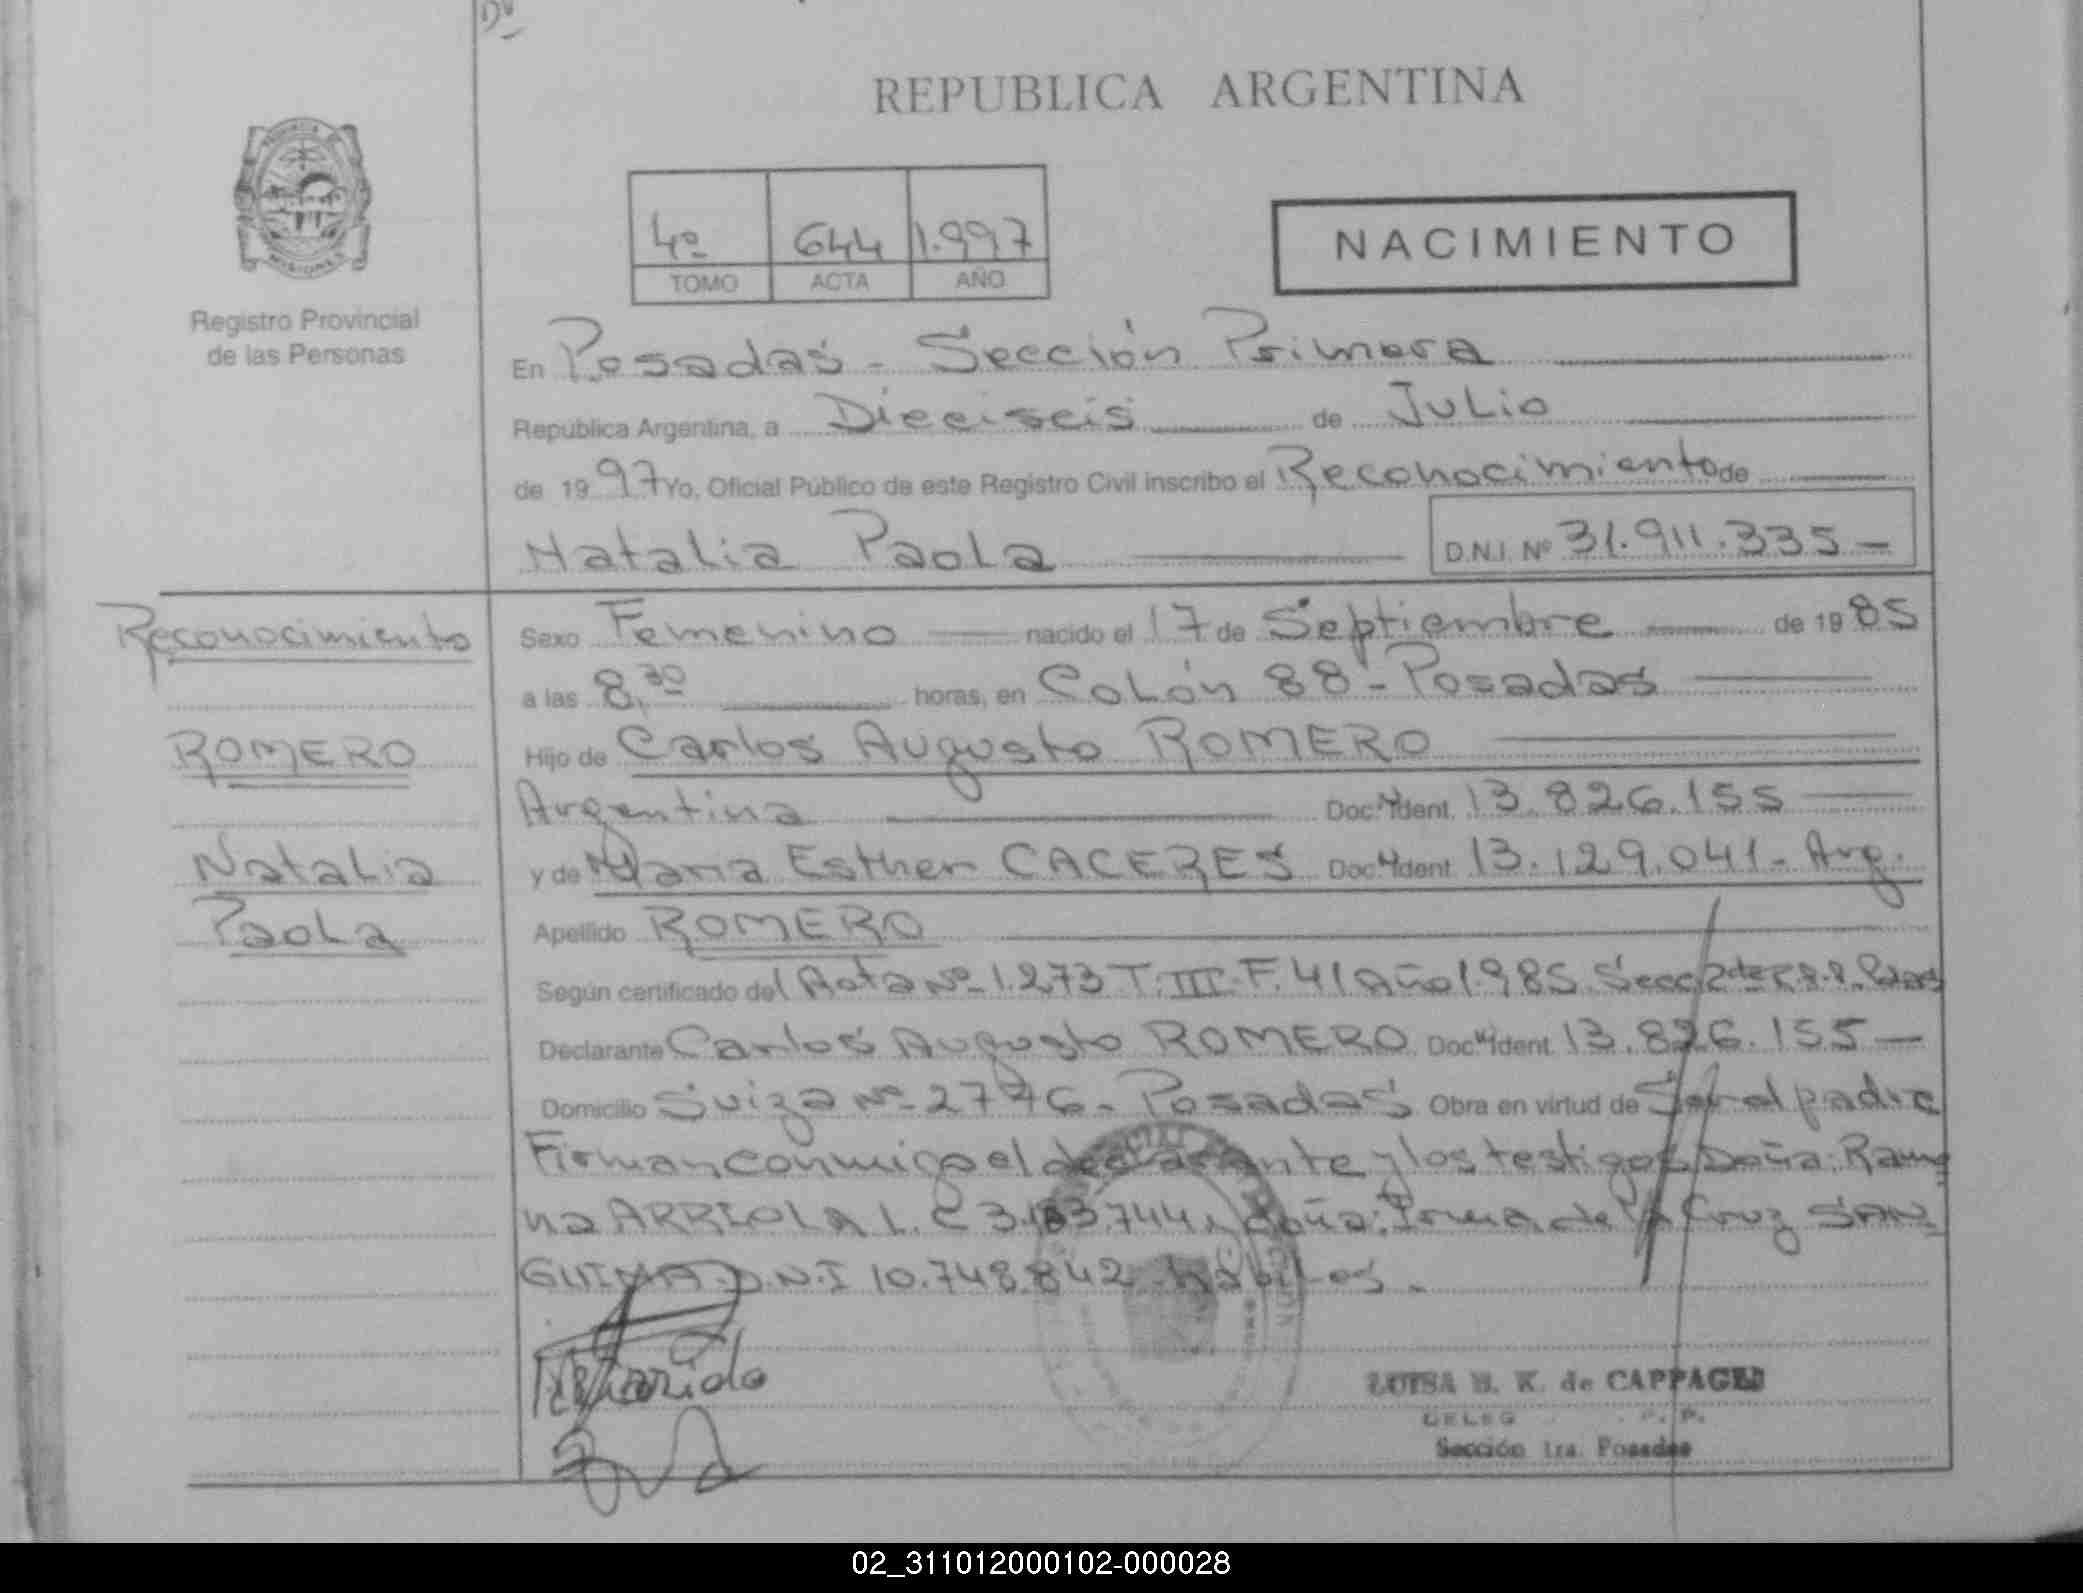 REPUBLICA ARGENTINA
4º 644 1.997
TOMO ACTA AÑO
NACIMIENTO
PROVINCIA
MISIONES
Registro Provincial
de las Personas
En Posadas - Sección Primera
República Argentina, a Dieciseis de Julio
de 1997 Yo, Oficial Público de este Registro Civil inscribo el Reconocimiento de
Natalia Paola D.N.I. Nº 31.911.335 -
Reconocimiento
ROMERO
Natalia
Paola
Sexo Femenino nacido el 17 de Septiembre de 1985
a las 8,30 horas, en Colón 88 - Posadas
Hijo de Carlos Augusto ROMERO
Argentina Doc. Ident. 13.826.155
y de Maria Esther CACERES Doc. Ident. 13.129.041 - Arg.
Apellido ROMERO
Según certificado del Acta Nº 1.273 T. III - F. 41 Año 1.985. Secc 2da
Declarante Carlos Augusto ROMERO Doc. Ident. 13.826.155 -
Domicilio Suiza Nº 2776 - Posadas Obra en virtud de Ser el padre
Firman conmigo el declarante y los testigos Doña: Ramo
na ARRIOLA L.C 3.183.744, doña: Irma de la Cruz SAN
GUINA D.N.I 10.748.842 hábiles -
LUISA H. K. de CAPPAGLI
DELEG P. P.
Sección 1ra. Posadas
02_311012000102-000028